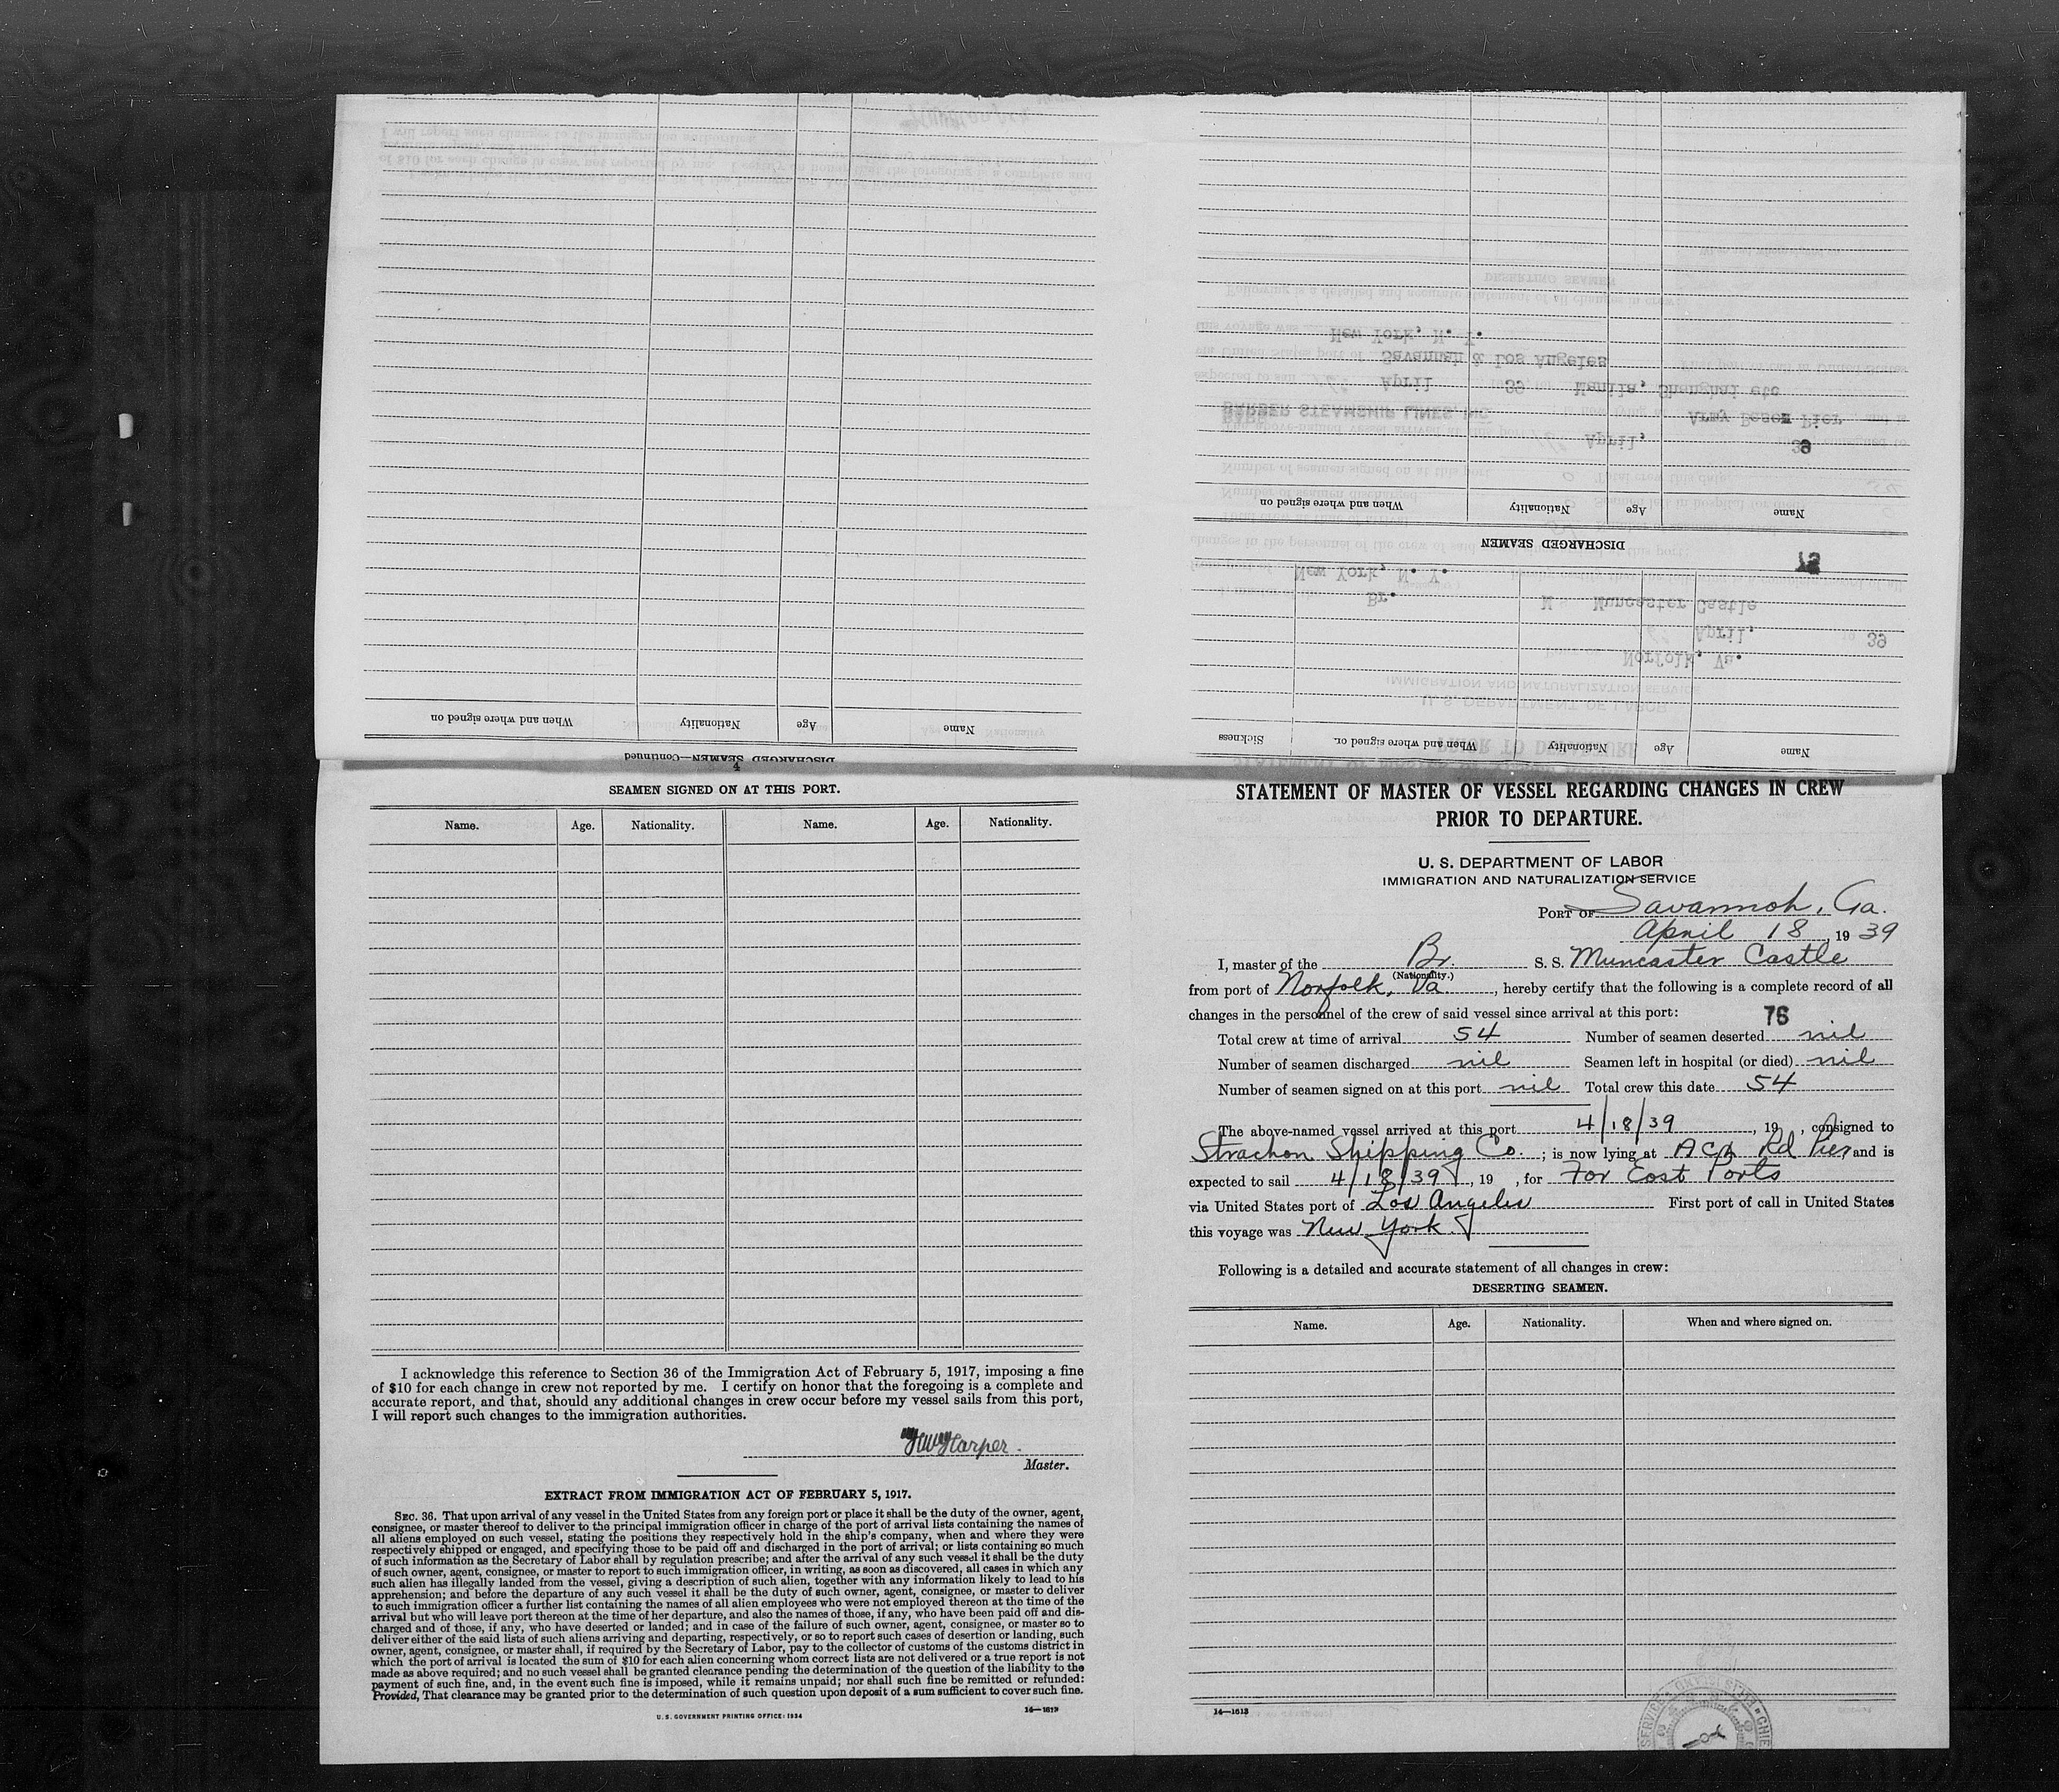 When and where signed on
Nationality
Age
Name
DISCHARGED SEAMEN—Continued
Name
Age
Nationality
When and where signed on or.
Sickness
DISCHARGED SEAMEN
Name
Age
Nationality
When and where signed on
75
Norfolk, Va.
April, 39
Br. Muncaster Castle
New York, N. Y.
April, 39
BARBER STEAMSHIP LINES, INC
Army Base Pier
April 39 Manila, Shanghai etc
Savannah & Los Angeles
New York, N. Y.
4
SEAMEN SIGNED ON AT THIS PORT.
Name. Age. Nationality. Name. Age. Nationality.
I acknowledge this reference to Section 36 of the Immigration Act of February 5, 1917, imposing a fine
of $10 for each change in crew not reported by me. I certify on honor that the foregoing is a complete and
accurate report, and that, should any additional changes in crew occur before my vessel sails from this port,
I will report such changes to the immigration authorities.
Harper.
Master.
EXTRACT FROM IMMIGRATION ACT OF FEBRUARY 5, 1917.
SEC. 36. That upon arrival of any vessel in the United States from any foreign port or place it shall be the duty of the owner, agent,
consignee, or master thereof to deliver to the principal immigration officer in charge of the port of arrival lists containing the names of
all aliens employed on such vessel, stating the positions they respectively hold in the ship's company, when and where they were
respectively shipped or engaged, and specifying those to be paid off and discharged in the port of arrival; or lists containing so much
of such information as the Secretary of Labor shall by regulation prescribe; and after the arrival of any such vessel it shall be the duty
of such owner, agent, consignee, or master to report to such immigration officer, in writing, as soon as discovered, all cases in which any
such alien has illegally landed from the vessel, giving a description of such alien, together with any information likely to lead to his
apprehension; and before the departure of any such vessel it shall be the duty of such owner, agent, consignee, or master to deliver
to such immigration officer a further list containing the names of all alien employees who were not employed thereon at the time of the
arrival but who will leave port thereon at the time of her departure, and also the names of those, if any, who have been paid off and dis-
charged and of those, if any, who have deserted or landed; and in case of the failure of such owner, agent, consignee, or master so to
deliver either of the said lists of such aliens arriving and departing, respectively, or so to report such cases of desertion or landing, such
owner, agent, consignee, or master shall, if required by the Secretary of Labor, pay to the collector of customs of the customs district in
which the port of arrival is located the sum of $10 for each alien concerning whom correct lists are not delivered or a true report is not
made as above required; and no such vessel shall be granted clearance pending the determination of the question of the liability to the
payment of such fine, and, in the event such fine is imposed, while it remains unpaid; nor shall such fine be remitted or refunded:
Provided, That clearance may be granted prior to the determination of such question upon deposit of a sum sufficient to cover such fine.
U. S. GOVERNMENT PRINTING OFFICE: 1934
14—1613
STATEMENT OF MASTER OF VESSEL REGARDING CHANGES IN CREW
PRIOR TO DEPARTURE.
U. S. DEPARTMENT OF LABOR
IMMIGRATION AND NATURALIZATION SERVICE
PORT OF Savannah, Ga.
April 18, 1939
I, master of the Br. S. S. Muncaster Castle
(Nationality.)
from port of Norfolk, Va., hereby certify that the following is a complete record of all
changes in the personnel of the crew of said vessel since arrival at this port:
76
Total crew at time of arrival 54 Number of seamen deserted nil
Number of seamen discharged nil Seamen left in hospital (or died) nil
Number of seamen signed on at this port nil Total crew this date 54
The above-named vessel arrived at this port 4/18/39, 19 , consigned to
Strachan Shipping Co. ; is now lying at ACL Rd Pier and is
expected to sail 4/18/39, 19 , for Far East Ports
via United States port of Los Angeles First port of call in United States
this voyage was New York.
Following is a detailed and accurate statement of all changes in crew:
DESERTING SEAMEN.
Name. Age. Nationality. When and where signed on.
14—1613